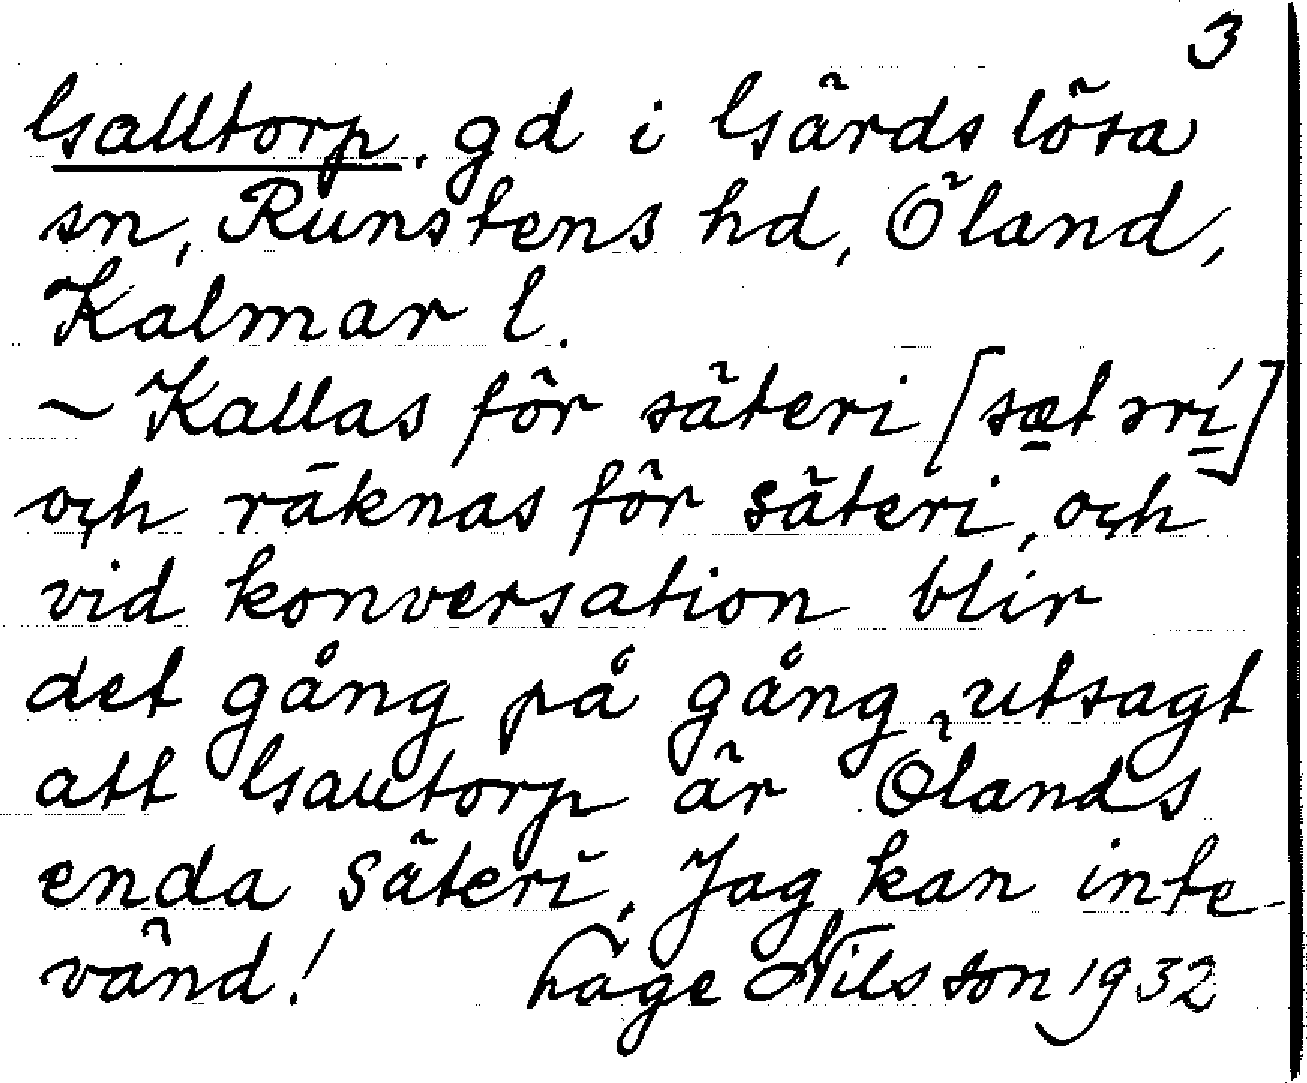 3
Galltorp, gd i Gärdslösa
sn, Runstens hd, Öland,
Kalmar l.
– Kallas för säteri [sætərí]
och räknas för säteri, och
vid konversation blir
det gång på gång utsagt
att Gautorp är Ölands
enda säteri. Jag kan inte
vänd! Låge Nilsson 1932